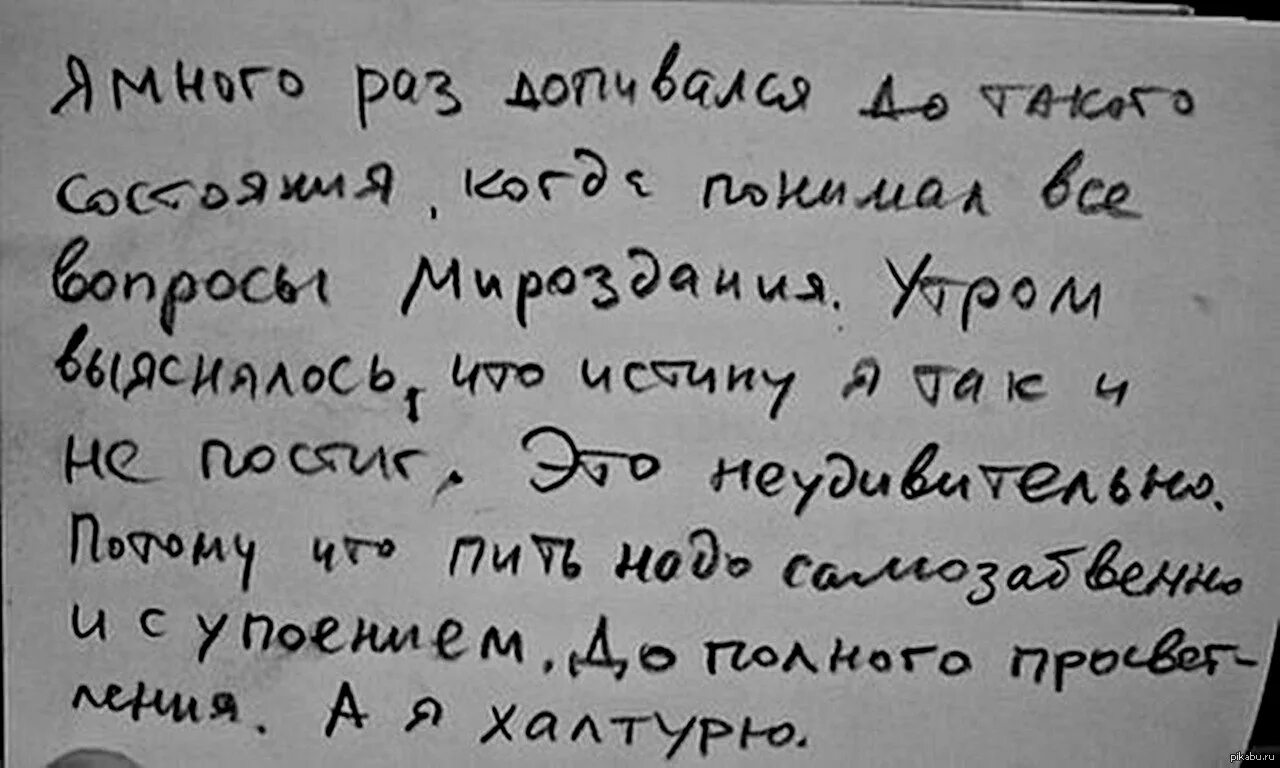 Я много раз допивался до такого
состояния, когда понимал все
вопросы Мироздания. Утром
выяснялось, что истину я так и
не постиг. Это неудивительно.
Потому что пить надо самозабвенно
и с упоением. До полного просвет-
ления. А я халтурю.
pikabu.ru